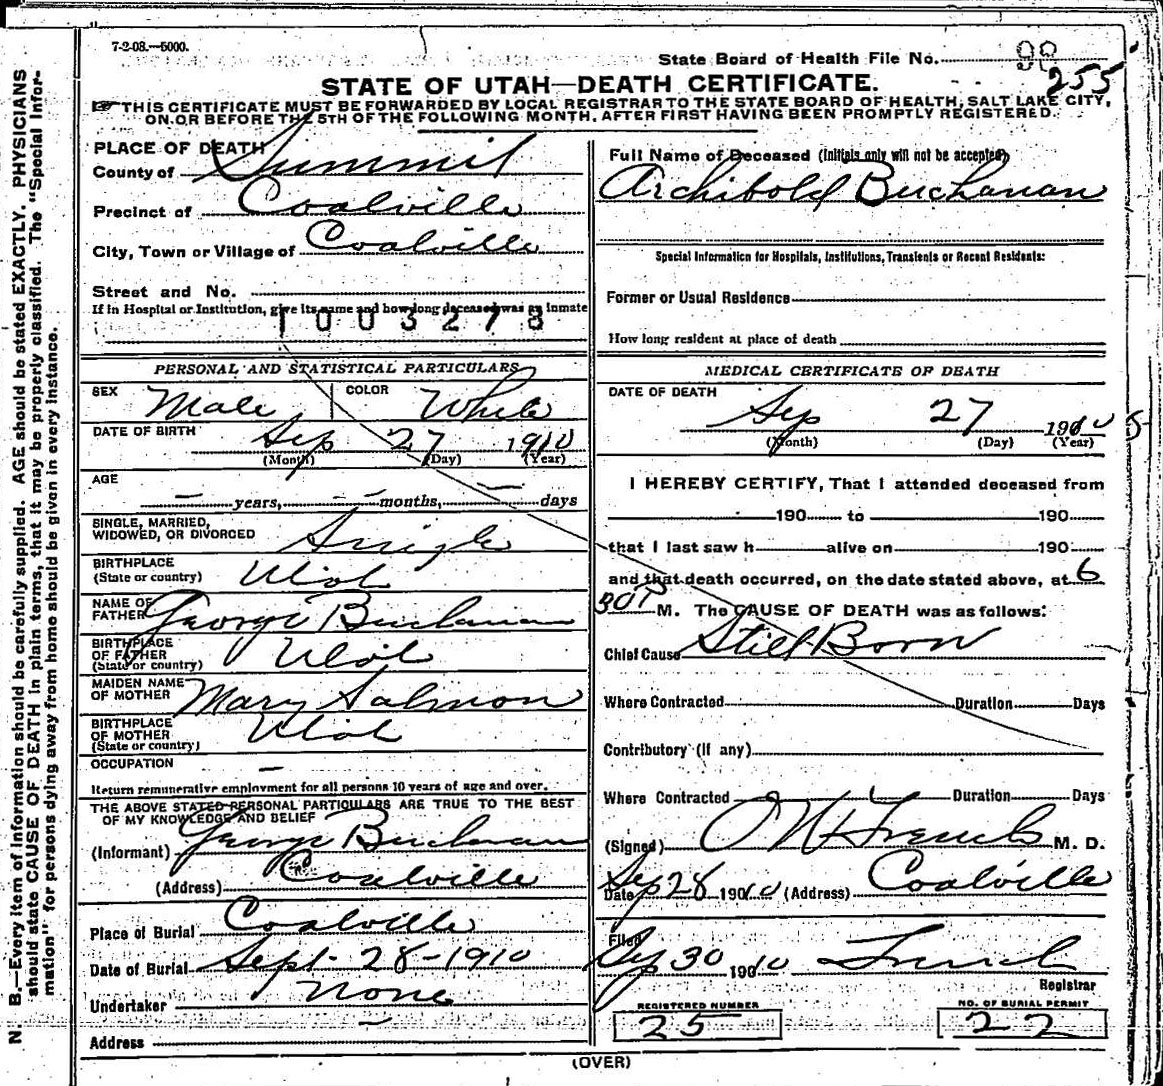 7-2-08.—5000.
State Board of Health File No. 99
255
STATE OF UTAH—DEATH CERTIFICATE.
☞ THIS CERTIFICATE MUST BE FORWARDED BY LOCAL REGISTRAR TO THE STATE BOARD OF HEALTH, SALT LAKE CITY,
ON OR BEFORE THE 5TH OF THE FOLLOWING MONTH, AFTER FIRST HAVING BEEN PROMPTLY REGISTERED.
N B.—Every item of information should be carefully supplied. AGE should be stated EXACTLY. PHYSICIANS
should state CAUSE OF DEATH in plain terms, that it may be properly classified. The "Special Infor-
mation" for persons dying away from home should be given in every instance.
PLACE OF DEATH
County of Summit
Precinct of Coalville
City, Town or Village of Coalville
Street and No.
If in Hospital or Institution, give its name and how long deceased was an inmate
1003278
PERSONAL AND STATISTICAL PARTICULARS
SEX Male COLOR White
DATE OF BIRTH Sep 27 1910
(Month) (Day) (Year)
AGE
— years, — months, — days
SINGLE, MARRIED,
WIDOWED, OR DIVORCED Single
BIRTHPLACE
(State or country) Utah
NAME OF
FATHER George Buchanan
BIRTHPLACE
OF FATHER
(State or country) Utah
MAIDEN NAME
OF MOTHER Mary Salmon
BIRTHPLACE
OF MOTHER
(State or country) Utah
OCCUPATION —
Return remunerative employment for all persons 10 years of age and over.
THE ABOVE STATED PERSONAL PARTICULARS ARE TRUE TO THE BEST
OF MY KNOWLEDGE AND BELIEF
(Informant) George Buchanan
(Address) Coalville
Place of Burial Coalville
Date of Burial Sept. 28-1910
Undertaker None
Address —
Full Name of Deceased (Initials only will not be accepted)
Archibold Buchanan
Special Information for Hospitals, Institutions, Transients or Recent Residents:
Former or Usual Residence
How long resident at place of death
MEDICAL CERTIFICATE OF DEATH
DATE OF DEATH
Sep 27 1910
(Month) (Day) (Year)
I HEREBY CERTIFY, That I attended deceased from
190 to 190
that I last saw h alive on 190
and that death occurred, on the date stated above, at 6
30 P M. The CAUSE OF DEATH was as follows:
Chief Cause Still Born
Where Contracted Duration Days
Contributory (if any)
Where Contracted Duration Days
(Signed) French M. D.
Date Sep 28 1910 (Address) Coalville
Filed
Sep 30 1910 French
Registrar
REGISTERED NUMBER
25
NO. OF BURIAL PERMIT
22
(OVER)